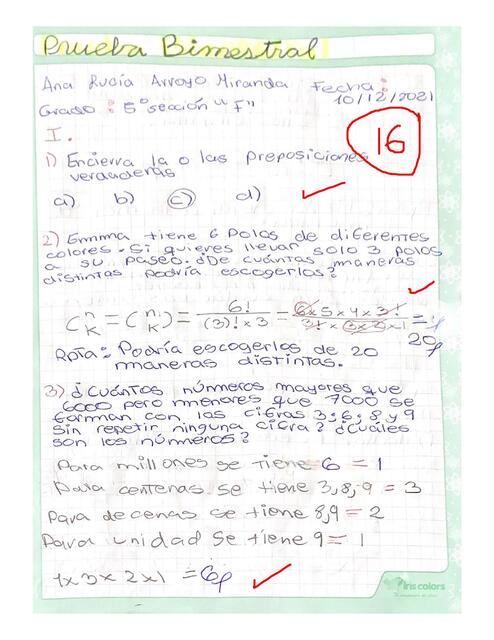 Prueba Bimestral
Ana Rucía Arroyo Miranda Fecha:
10/12/2021
Grado: 5° sección "F"
16
I.
1) Encierra la o las preposiciones
verdaderas
a) b) c) d)
2) Emma tiene 6 Polos de diferentes
colores. Si quieres llevar solo 3 polos
a su paseo. ¿De cuántas maneras
distintas Podría escogerlos?
C n K = (n K) = 6! / (3)! x 3 = 6x5x4x3! / 3! x 3x2x1 =
20
Rpta: Podría escogerlos de 20
maneras distintas.
3) ¿Cuántos números mayores que
6000 pero menores que 7000 se
forman con las cifras 3; 6; 8 y 9
sin repetir ninguna cifra? ¿Cuáles
son los números?
Para millones se tiene 6 = 1
Para centenas se tiene 3,8,9 = 3
Para decenas se tiene 8,9 = 2
Para unidad se tiene 9 = 1
1x3x2x1 = 6
Iris colors